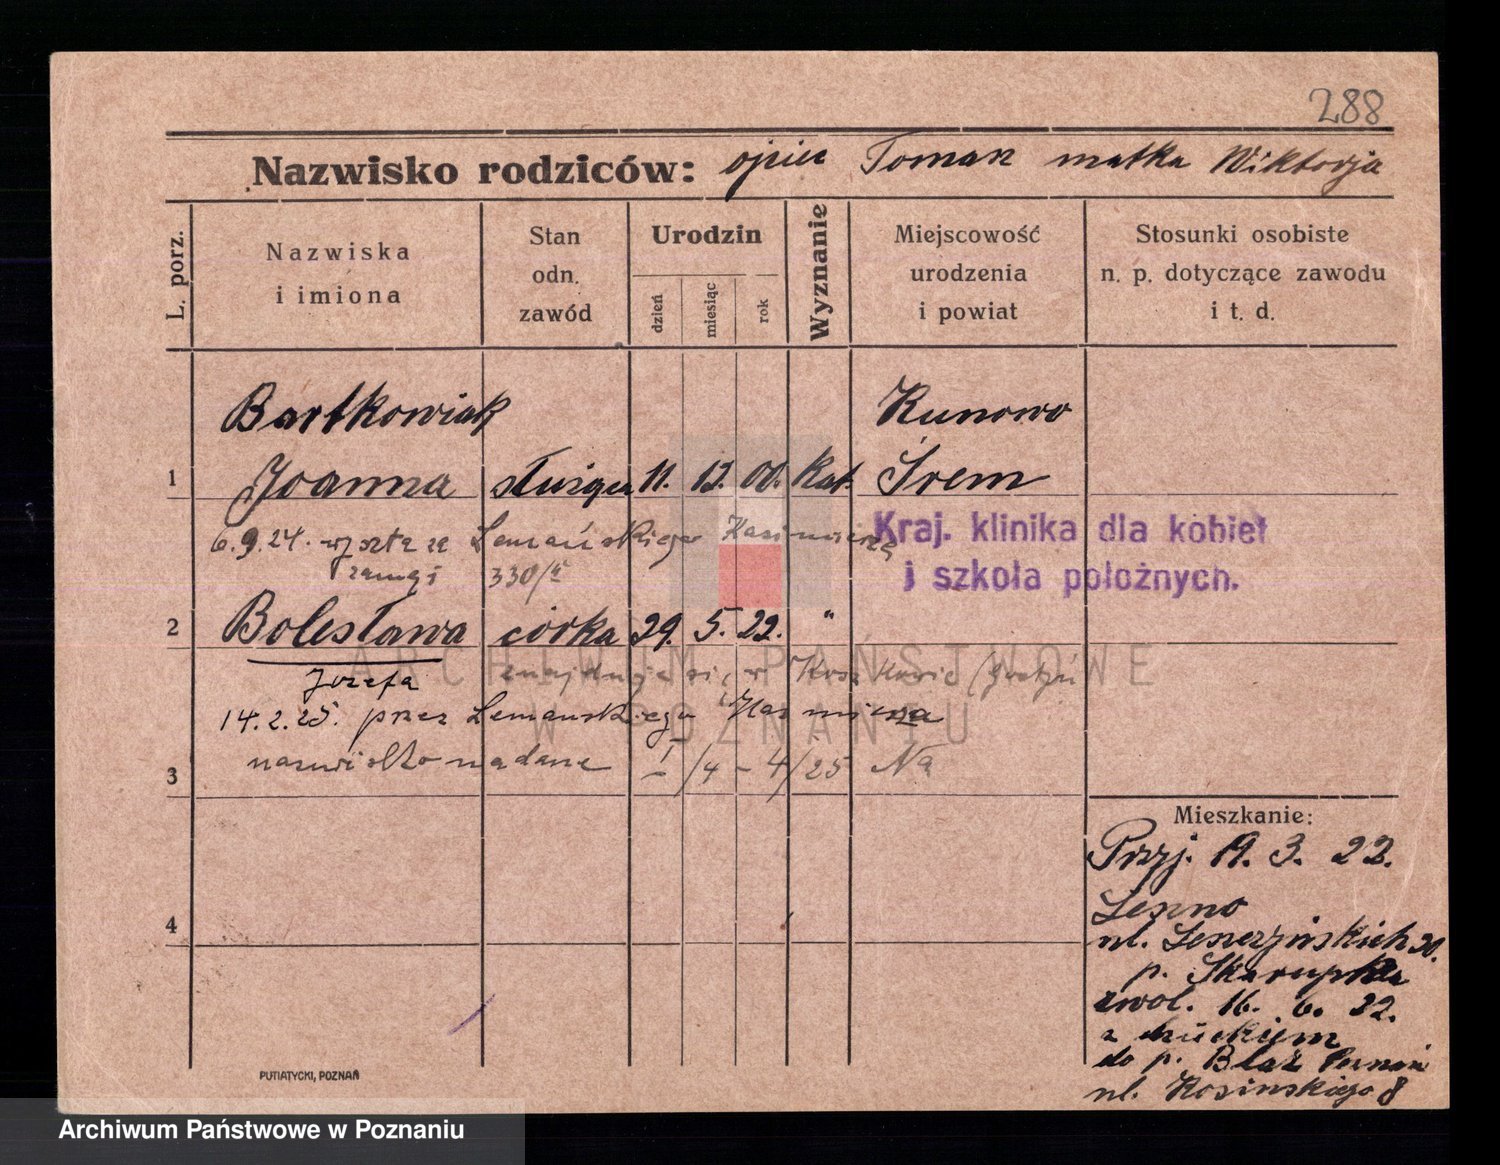 288
Nazwisko rodziców: ojciec Tomasz matka Wiktorja
L. porz.
Nazwiska i imiona
Stan odn. zawód
Urodzin
dzień
miesiąc
rok
Wyznanie
Miejscowość urodzenia i powiat
Stosunki osobiste n. p. dotyczące zawodu i t. d.
Bartkowiak Kunowo
1 Joanna służąca 11. 12. 00. Kat. Śrem
6.9.24. wyszła za Lemańskiego Kazimierza
zamąż 330/
Kraj. klinika dla kobiet
i szkoła położnych.
2 Bolesława córka 29. 5. 22. "
Józefa znajduje się w
14.2.25. przez Lemańskiego Kazimierza
3 nazwisko nadane I/4-4/25 Na
4
Mieszkanie:
Przyj. 19. 3. 22.
Leszno
ul. Leszczyńskich 20.
p. Skarupka
zwol. 16. 6. 22.
z dzieckiem
do p. Błaż Poznań
ul. Kosińskiego 8
PUTIATYCKI, POZNAŃ
ARCHIWUM PAŃSTWOWE
W POZNANIU
Archiwum Państwowe w Poznaniu